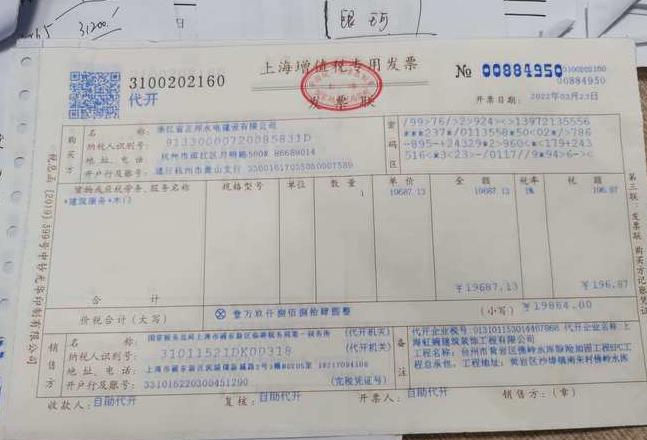 31200.
3100202160
代开
上海增值税专用发票
发票联
№ 00884950
3100202160
00884950
开票日期: 2022年03月23日
购买方
名称: 浙江省正邦水电建设有限公司
纳税人识别号: 91330000720085831D
地址、电话: 杭州市滨江区月明路560# 86689014
开户行及账号: 建行杭州市萧山支行 33001617035050007589
密码区
/99>76/>2>924<>13972135556
***237*/0113558*50<02*/>786
-895-+24329*2>960<*<179+243
516<*3<23>-/0117//9*94>6-><
货物或应税劳务、服务名称 规格型号 单位 数量 单价 金额 税率 税额
*建筑服务*木门 1 19687.13 19687.13 1% 196.87
合计 ￥19687.13 ￥196.87
价税合计(大写) ⊗ 壹万玖仟捌佰捌拾肆圆整 (小写) ￥19884.00
销售方
名称: 国家税务总局上海市浦东新区临港税务局第一税务所 (代开机关)
纳税人识别号: 3101152IDK00318 (代开机关)
地址、电话:
开户行及账号: 331016220300451290 (完税凭证号)
备注
代开企业名称: 上
海虹娴建筑装饰工程有限公司
工程名称: 台州市黄岩区佛岭水库除险加固工程EPC工
程总承包, 工程地址: 黄岩区沙埠镇南朱村佛岭水库
收款人: 自助代开 复核: 自助代开 开票人: 自助代开 销售方: (章)
第三联: 发票联 购买方记账凭证